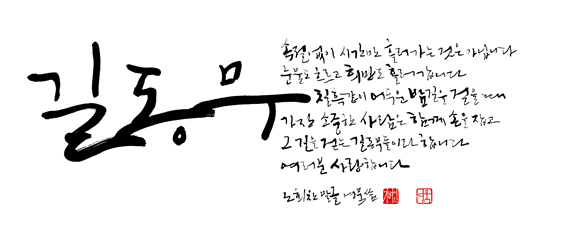 길동무
속절없이 시간만 흘러가는 것은 아닙니다
눈물도 흐르고 희망도 흘러갑니다
칠흑같이 어두운 밤길을 걸을 때
가장 소중한 사람은 함께 손을 잡고
그 길을 걷는 길동무들이라 합니다
여러분 사랑합니다
노회찬 말글